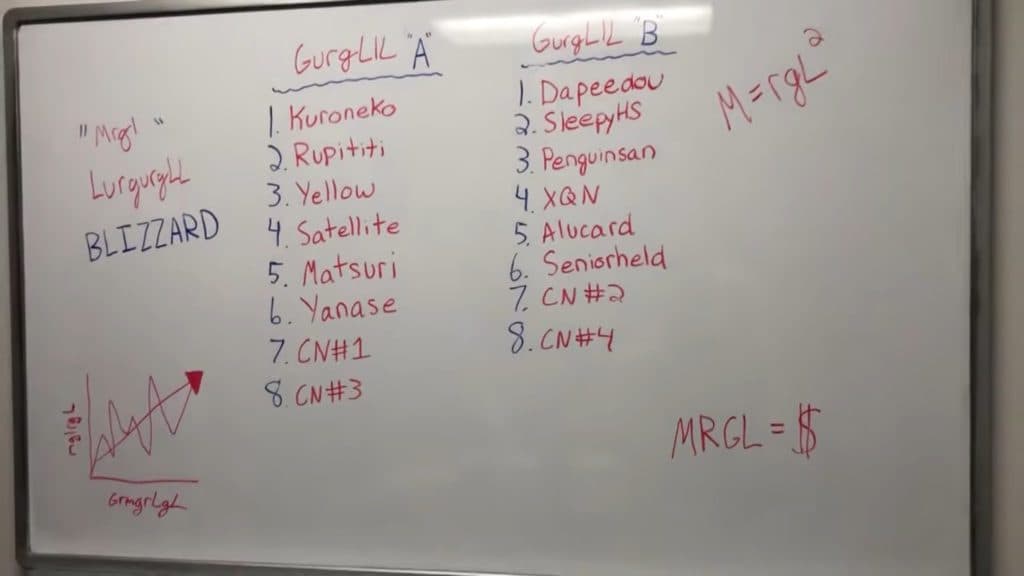 "Mrgl"
LurgurgLL
BLIZZARD
mglrgL
GrmgrLgL
GurgLIL "A"
1. Kuroneko
2. Rupititi
3. Yellow
4. Satellite
5. Matsuri
6. Yanase
7. CN#1
8. CN#3
GurgLIL "B"
1. Dapeedou
2. SleepyHS
3. Penguinsan
4. XQN
5. Alucard
6. Seniorheld
7. CN#2
8. CN#4
M=rgL²
MRGL = $